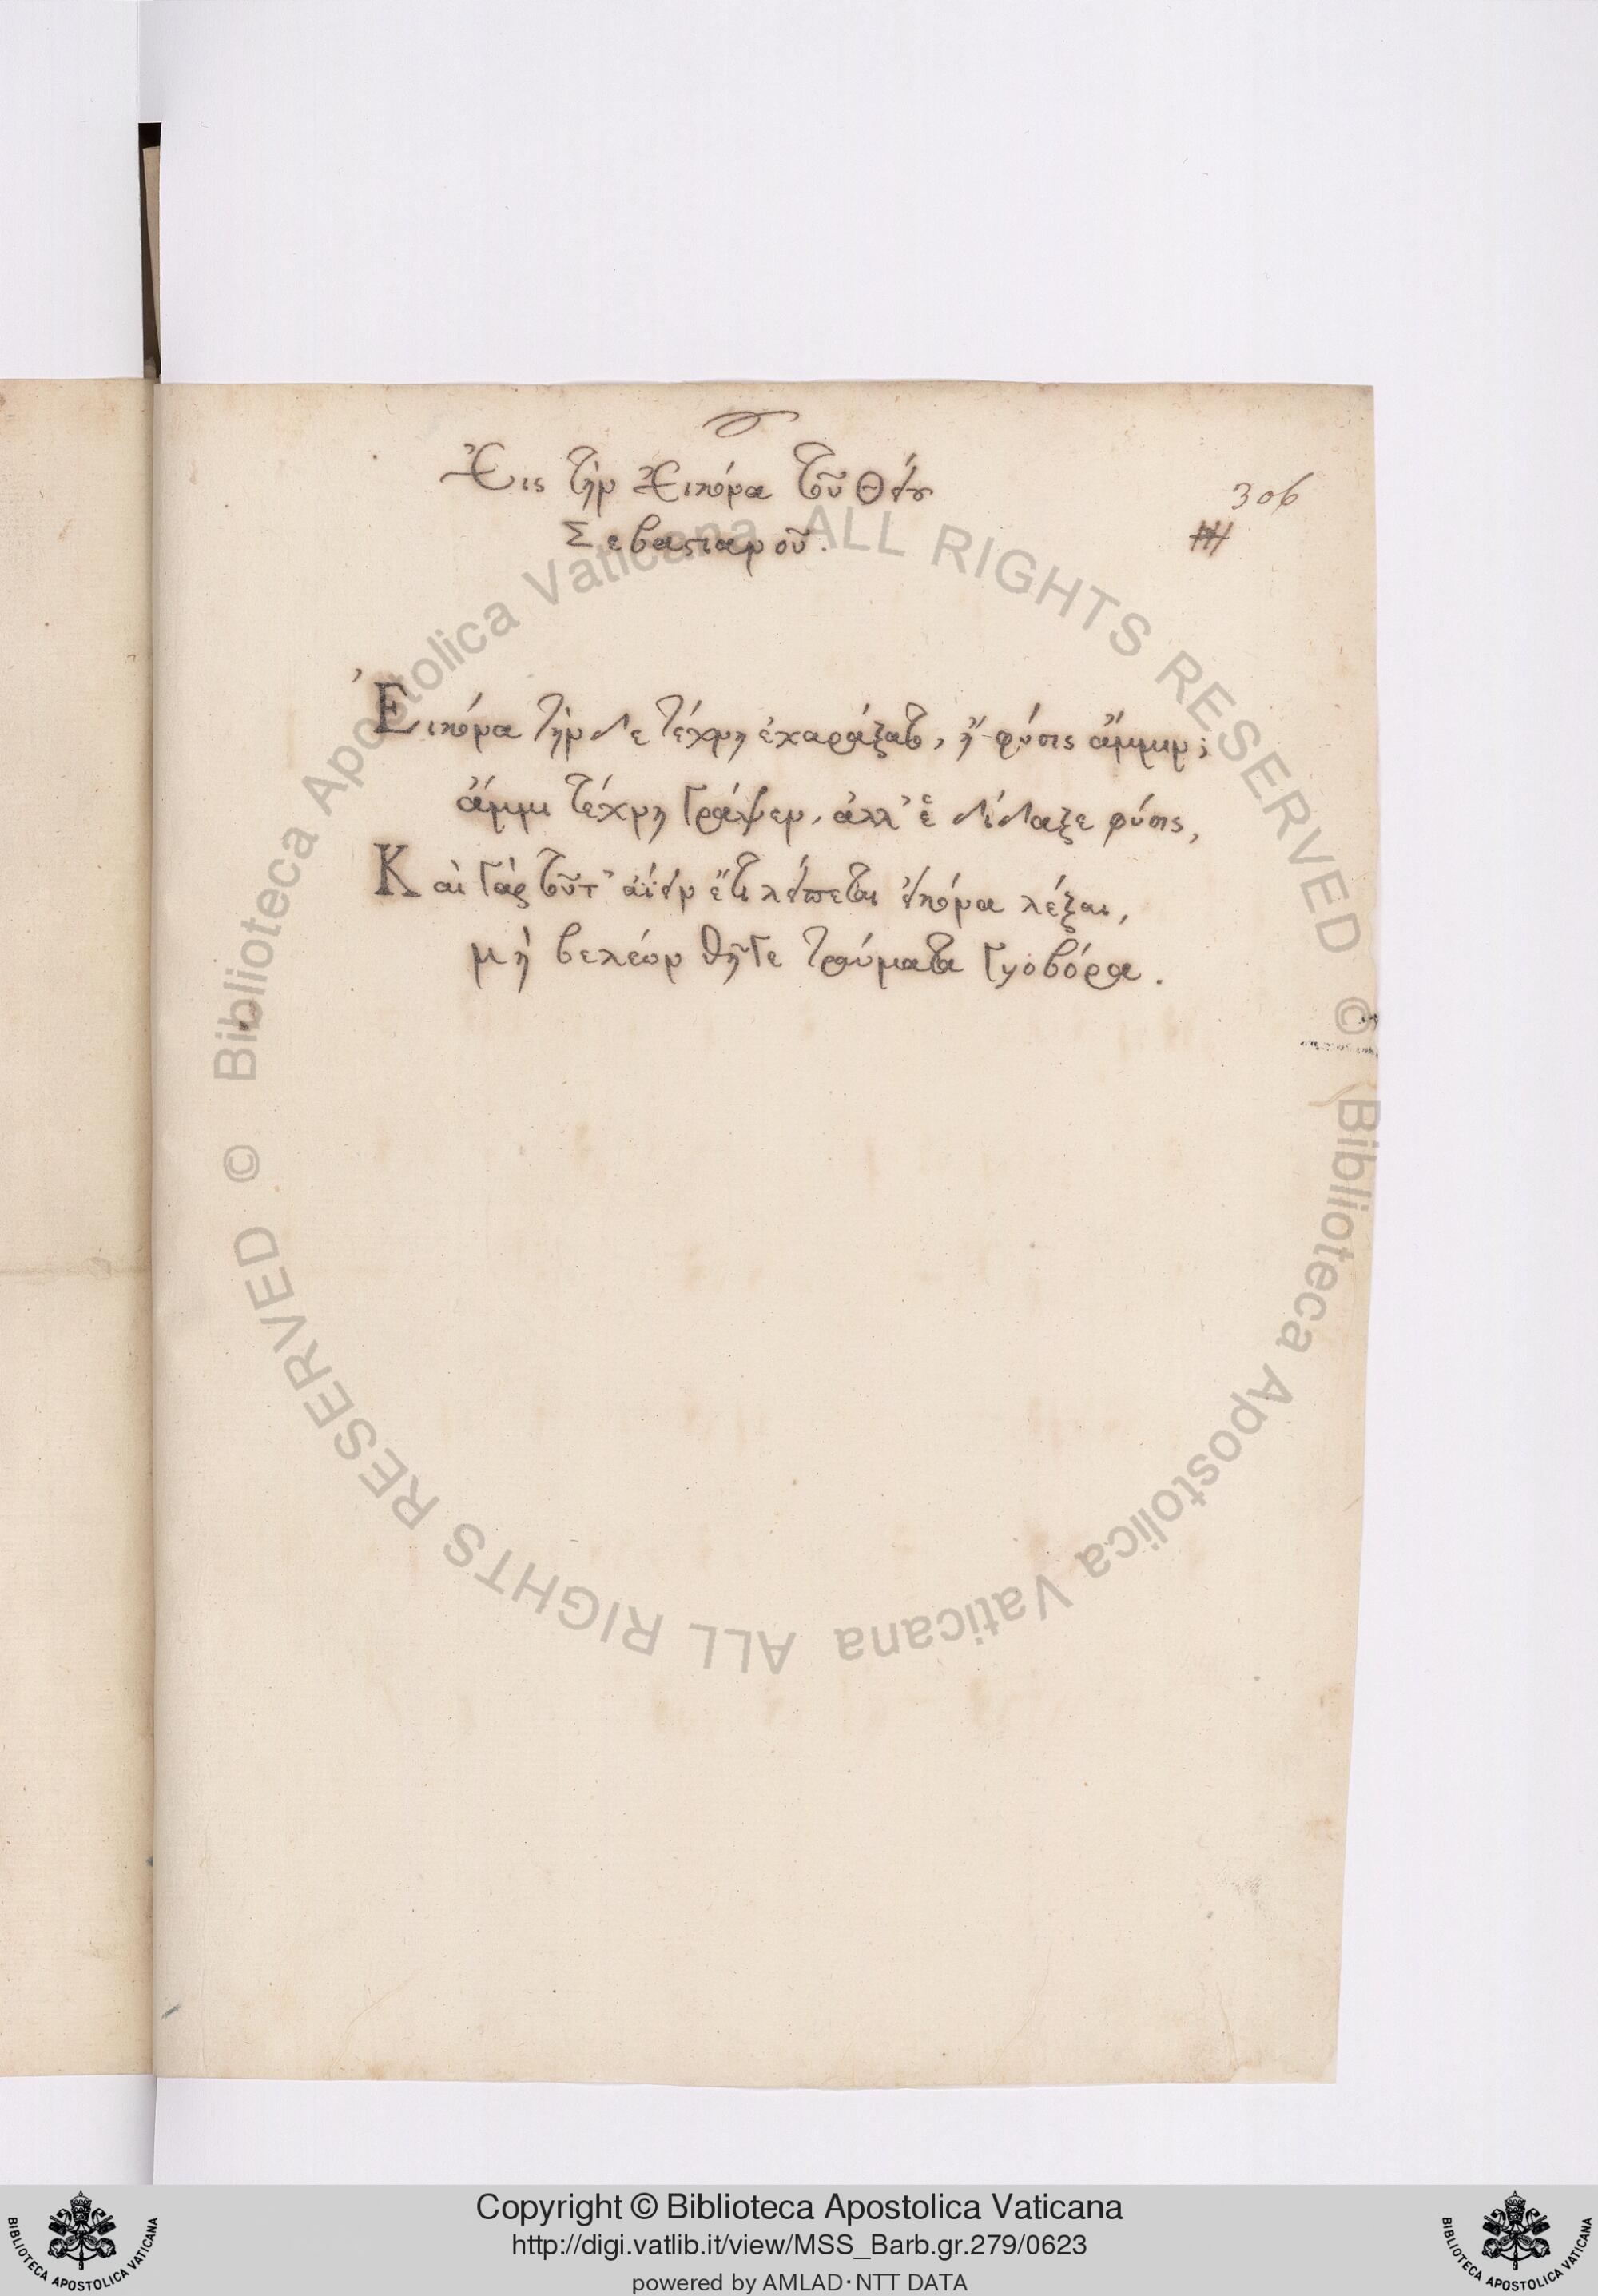 Εἰς τὴν Εἰκόνα τοῦ Θείου
Σεβαστιανοῦ.
306
Εἰκόνα τήνδε τέχνη ἐχαράξατο, ἢ φύσις ἄμμιν;
ἄμμι τέχνη γράψεν, ἀλλ' ἓ δίδαξε φύσις,
Καὶ γὰρ τοῦτ' αἰεὶν ἔτι λείπεται εἰκόνα λέξαι,
μὴ βελέων θῆγε τραύματα γυοβόρα.
Copyright © Biblioteca Apostolica Vaticana
http://digi.vatlib.it/view/MSS_Barb.gr.279/0623
powered by AMLAD·NTT DATA
© Biblioteca Apostolica Vaticana ALL RIGHTS RESERVED
© Biblioteca Apostolica Vaticana ALL RIGHTS RESERVED
BIBLIOTECA APOSTOLICA VATICANA
BIBLIOTECA APOSTOLICA VATICANA